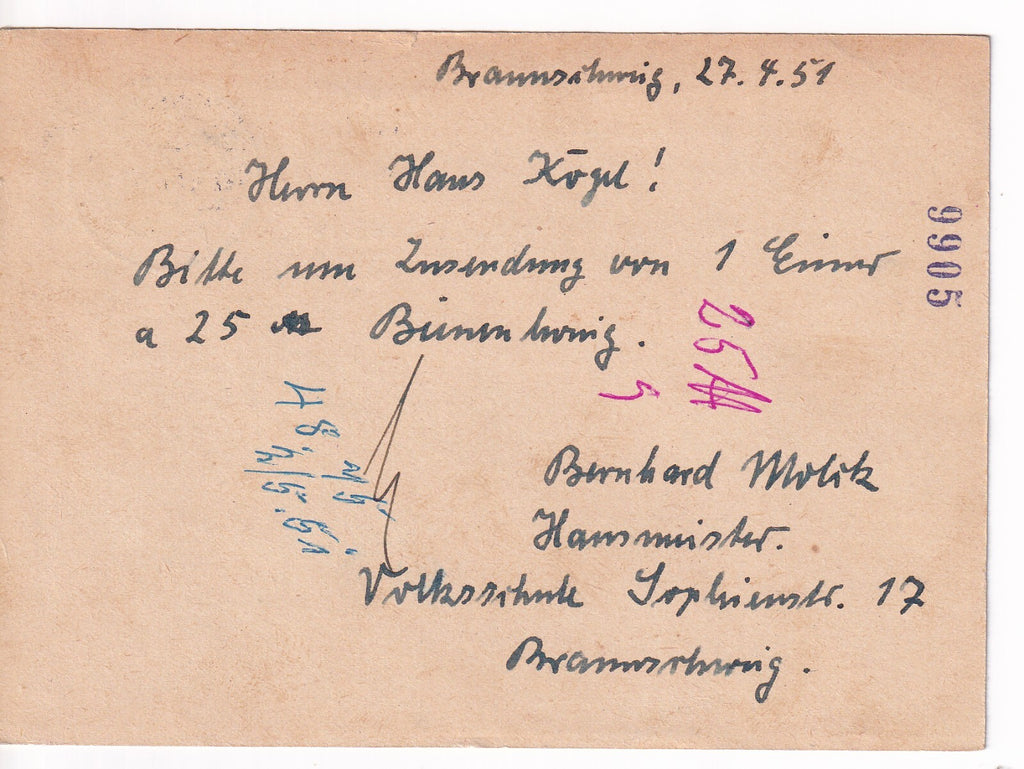 Braunschweig, 27.4.51
Herrn Hans Kögel!
Bitte um Zusendung von 1 Eimer
a 25 ℔ Bienenhonig.
9905
25 ℔
Bernhard Molck
Hausmeister.
Volksschule Sophienstr. 17
Braunschweig.